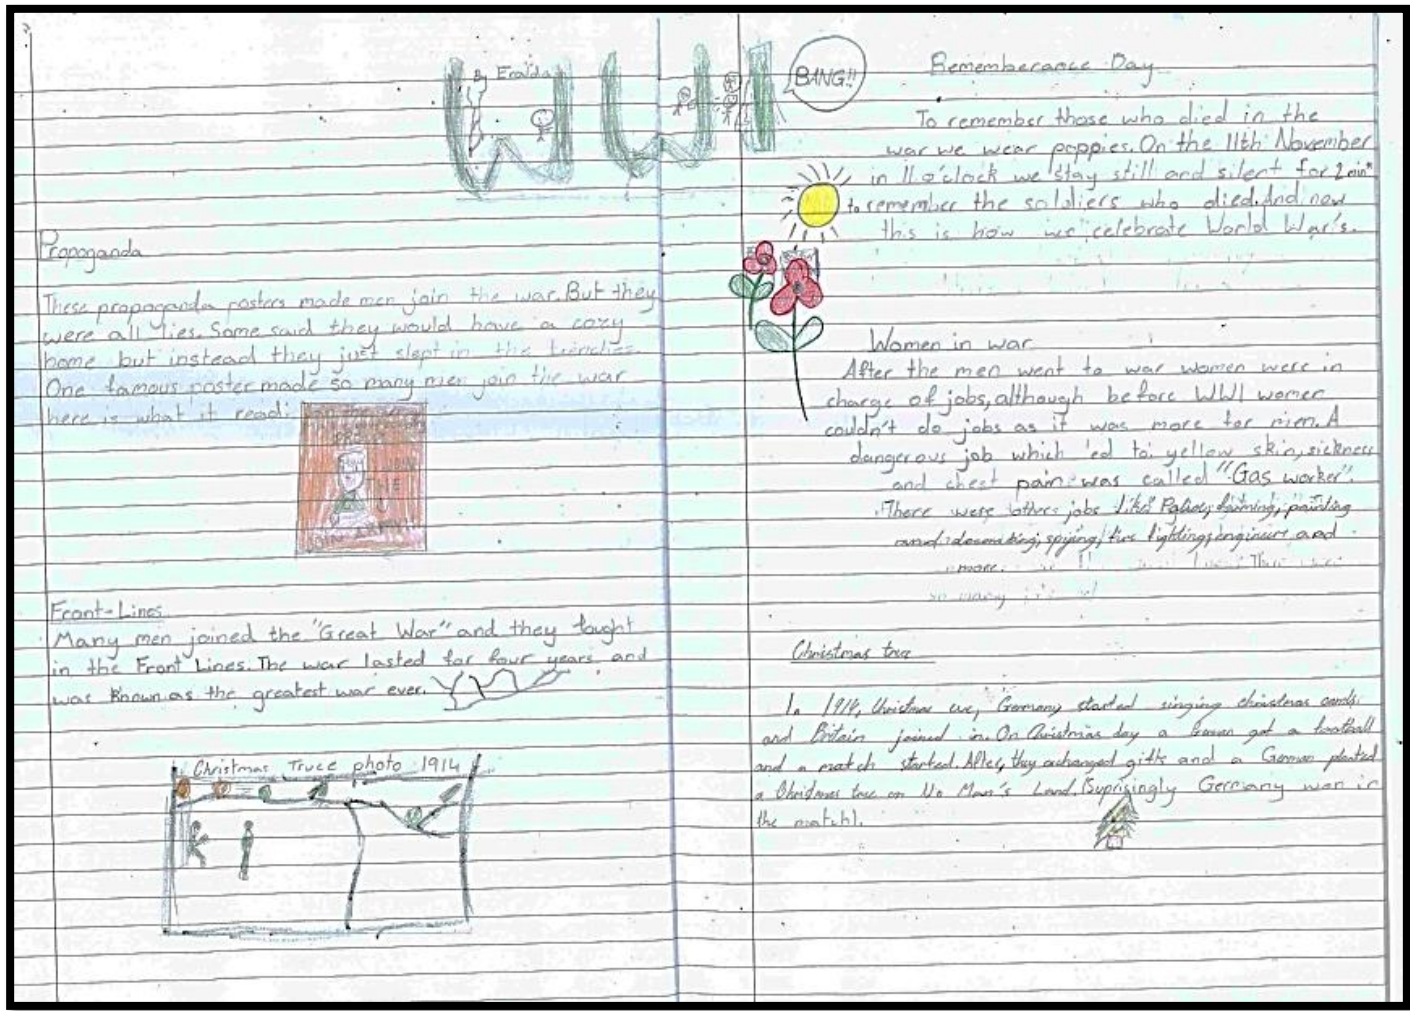 WW1
By Eralda
BANG!!
Propoganda
These propoganda posters made men join the war. But they
were all lies. Some said they would have a cozy
home but instead they just slept in the trenches.
One famous poster made so many men join the war
here is what it read:
JOIN ARMY!!
Front-Lines
Many men joined the "Great War" and they fought
in the Front Lines. The war lasted for four years and
was known as the greatest war ever.
Christmas Truce photo 1914
Rememberance Day
To remember those who died in the
war we wear poppies. On the 11th November
in 11 o'clock we stay still and silent for 2 min
to remember the soldiers who died. And now
this is how we celebrate World War's.
Women in war
After the men went to war women were in
charge of jobs, although before WW1 women
couldn't do jobs as it was more for men. A
dangerous job which led to: yellow skin, sickness
and chest pain was called "Gas worker".
There were other jobs like: Police, farming, painting
and decorating, spying, fire fighting, engineers and
more.
so many
Christmas truce
In 1914, Christmas eve, Germany started singing christmas carols
and Britain joined in. On Christmas day a German got a football
and a match started. After, they exchanged gifts and a German planted
a Christmas tree on No Man's Land. (Suprisingly Germany won in
the match).